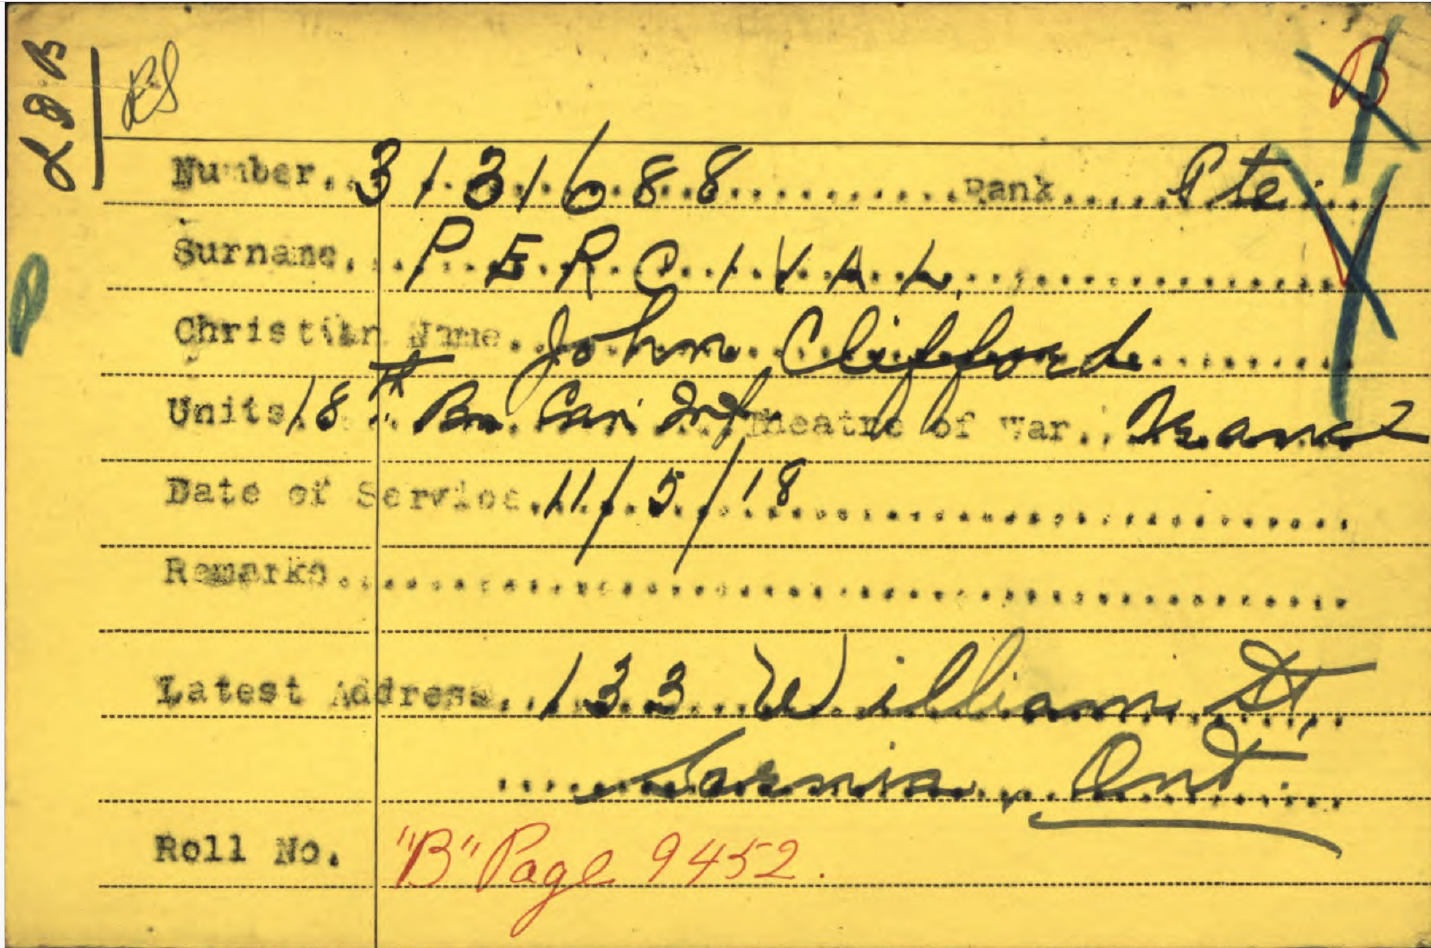 RS
B
Number 3131688 Rank Pte.
V
Surname PERCIVAL
Christian Name John Clifford
Units 18th Bn Can Inf Theatre of War France
Date of Service 11/5/18
Remarks
Latest Address 133 William St,
Sarnia, Ont.
Roll No. "B" Page 9452.